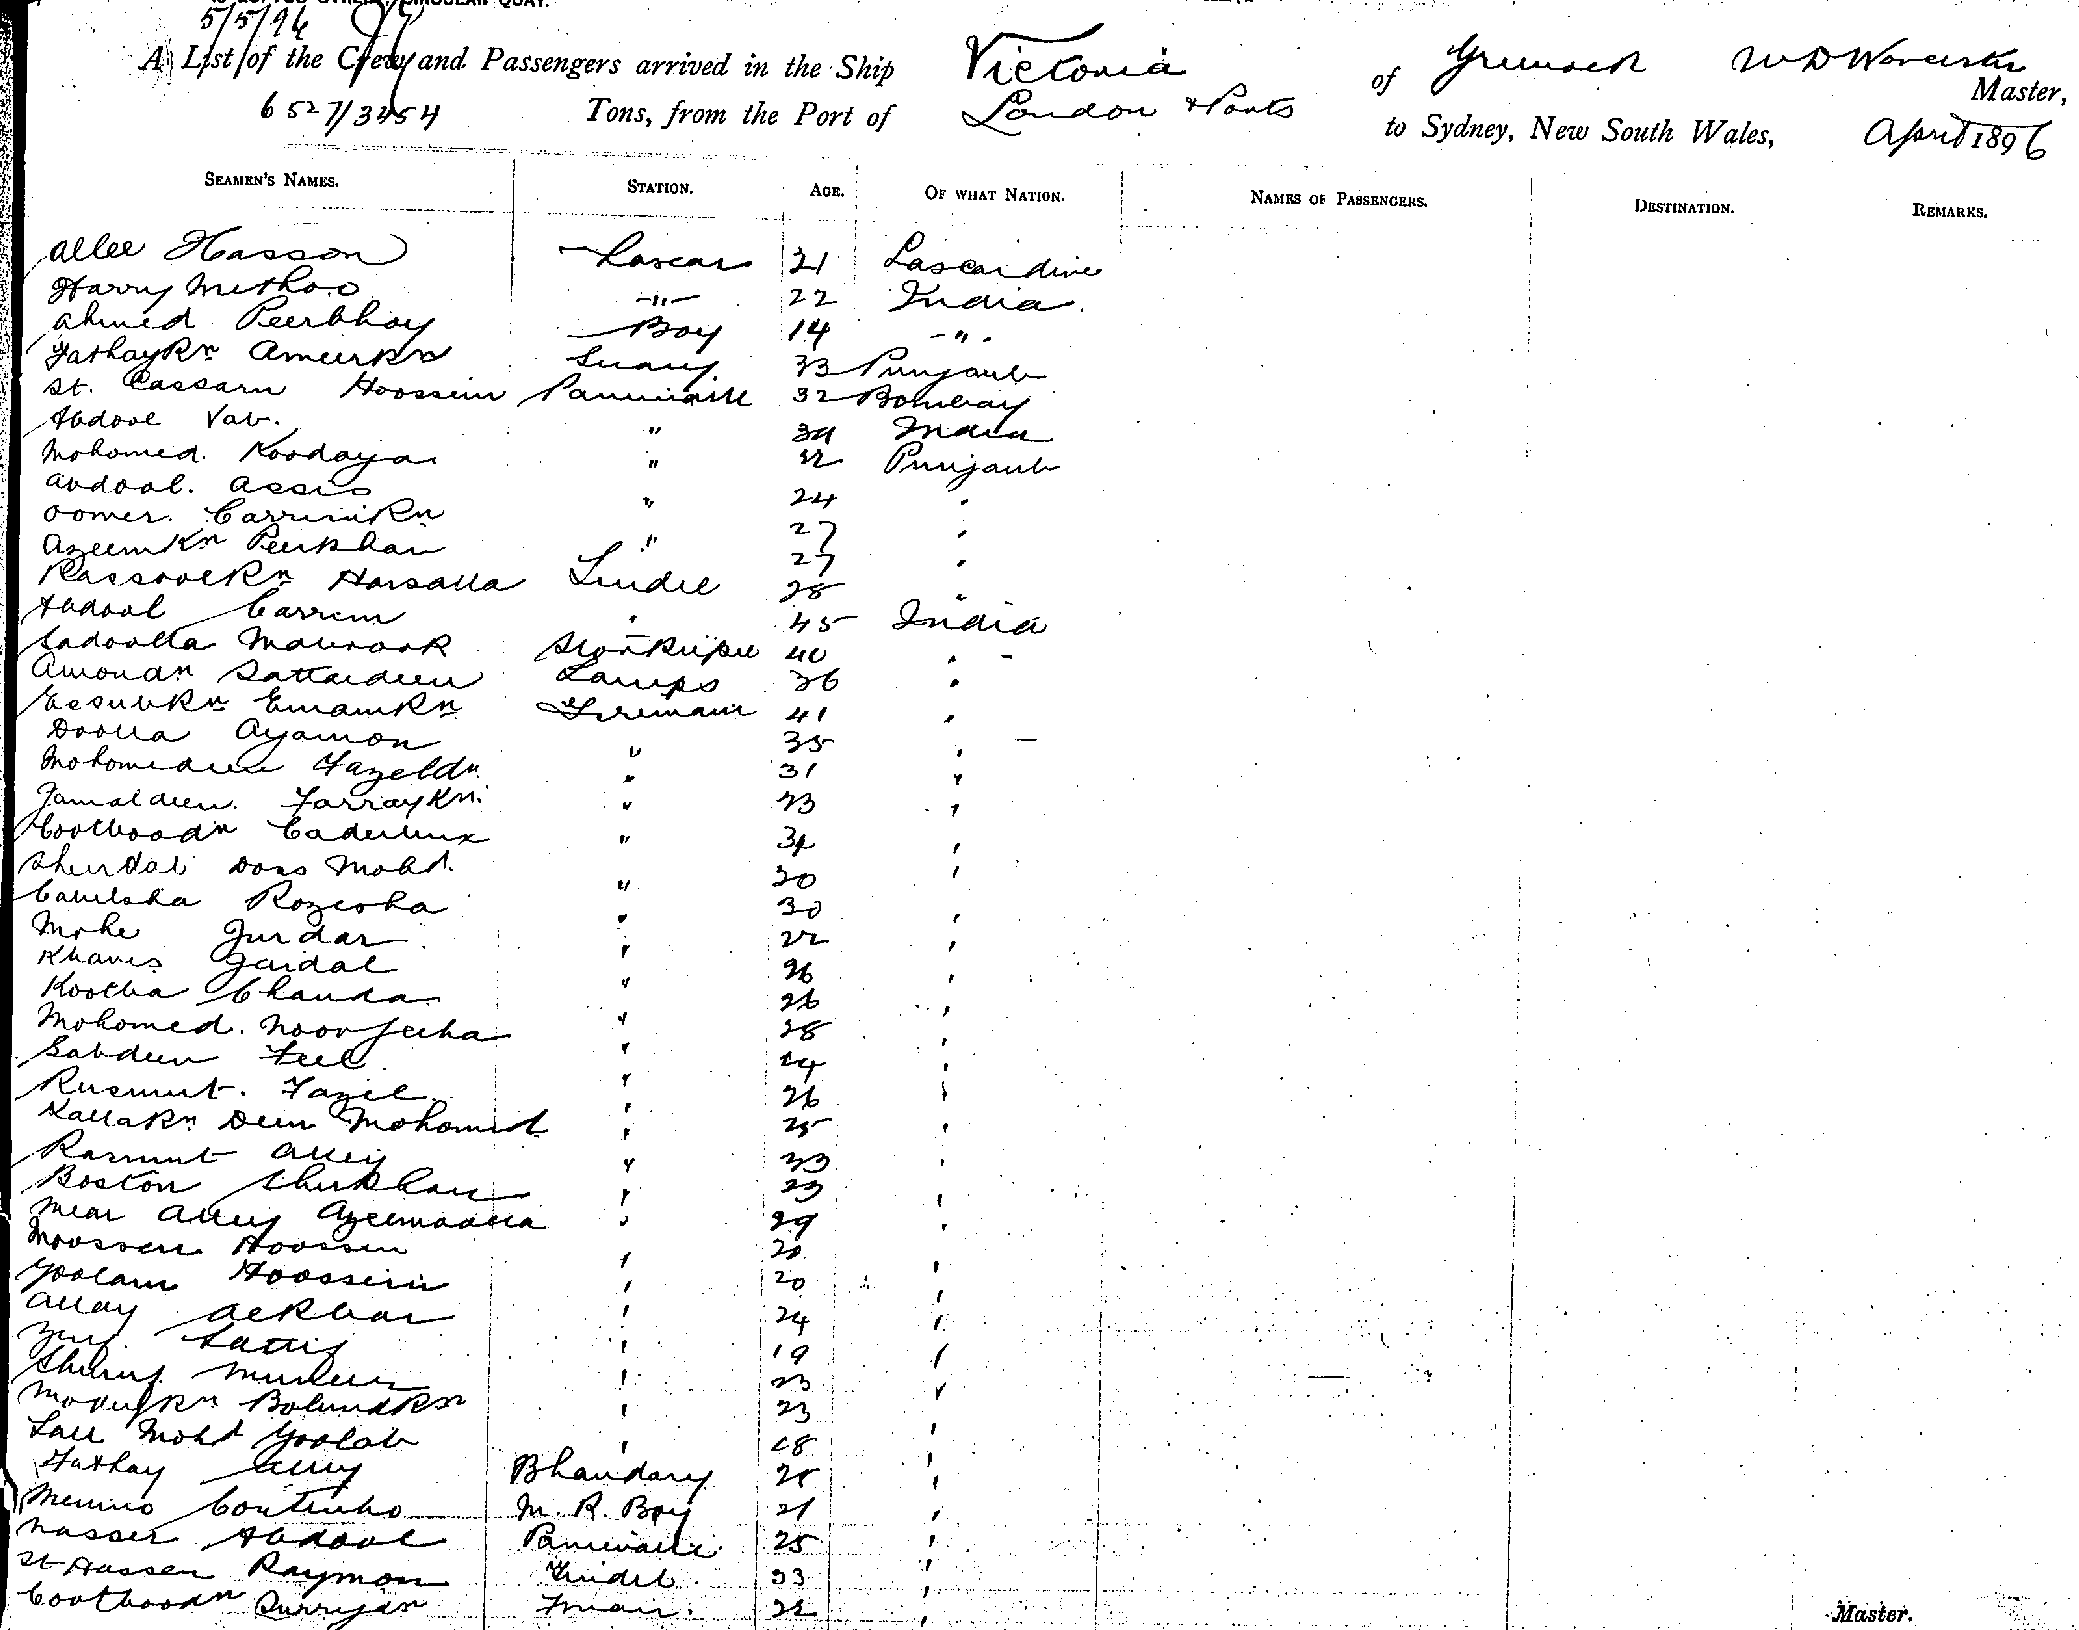 5/5/96
A List of the Crew and Passengers arrived in the Ship Victoria of Greenock W D Worcester Master,
6527/3454 Tons, from the Port of London & Ports to Sydney, New South Wales, April 1896
SEAMEN'S NAMES. STATION. AGE. OF WHAT NATION. NAMES OF PASSENGERS. DESTINATION. REMARKS.
Allee Hasson Lascar 21
Harry Methoo -"- 22 India
Ahmed Peerbhoy Boy 14 - " -
Fathaykn Ameerkn 33 Punjaub
St. Cassam Hoossein Panniwalla 32 Bombay
Abdool Vab. " India
Mohomed Koodaya " 32 Punjaub
Abdool Assis " 24 "
Oomer Carrimkn " 27 "
Azeemkn Peerkhan " 27 "
Rassoolkn Tindel 28 "
Abdool Carrim " 45 India
Sadoolla Mabrook 40 "
Amondn Sattardeen Lamps 36 "
Eesubkn Emamkn Fireman 41 "
Doolla Ayamon " 35 "
Mohomedeen Fazeldn " 31 "
Jamaldeen Farraykn " 23 "
Cootboodn Caderbux " "
Doss Mohd. " 30 "
Rozesha " 30
" 22 "
" 26 "
Kootba Chanda " 26 "
Mohomed Noorjeeha " 28 "
Sabdeen " 24 "
Rusmut Fazel " 26 "
Kallakn Deen Mohomed " 25 "
Rasmut Alley " 33 "
Boston Sherkhan " 23 "
Mear Alley " 29 "
Moossen Hoossen " 20
Goolam Hoossein " 20 "
Allay Ackbar " 24 "
" 19 "
" 23 "
" 23 "
Lall Mohd Goolab " 28 "
Fathay Alley Bhandary 25 "
Menino Coutinho M. R. Boy 21 "
Nasser Abdool Panniwalla 25 "
St Hassen Raymon Tindel 33 "
Cootboodn Fman. 22 "
Master.